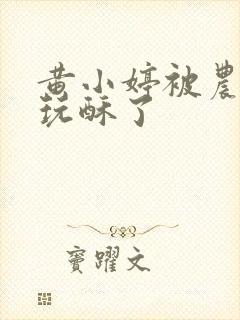 黄小婷被農
玩酥了
竇躍文